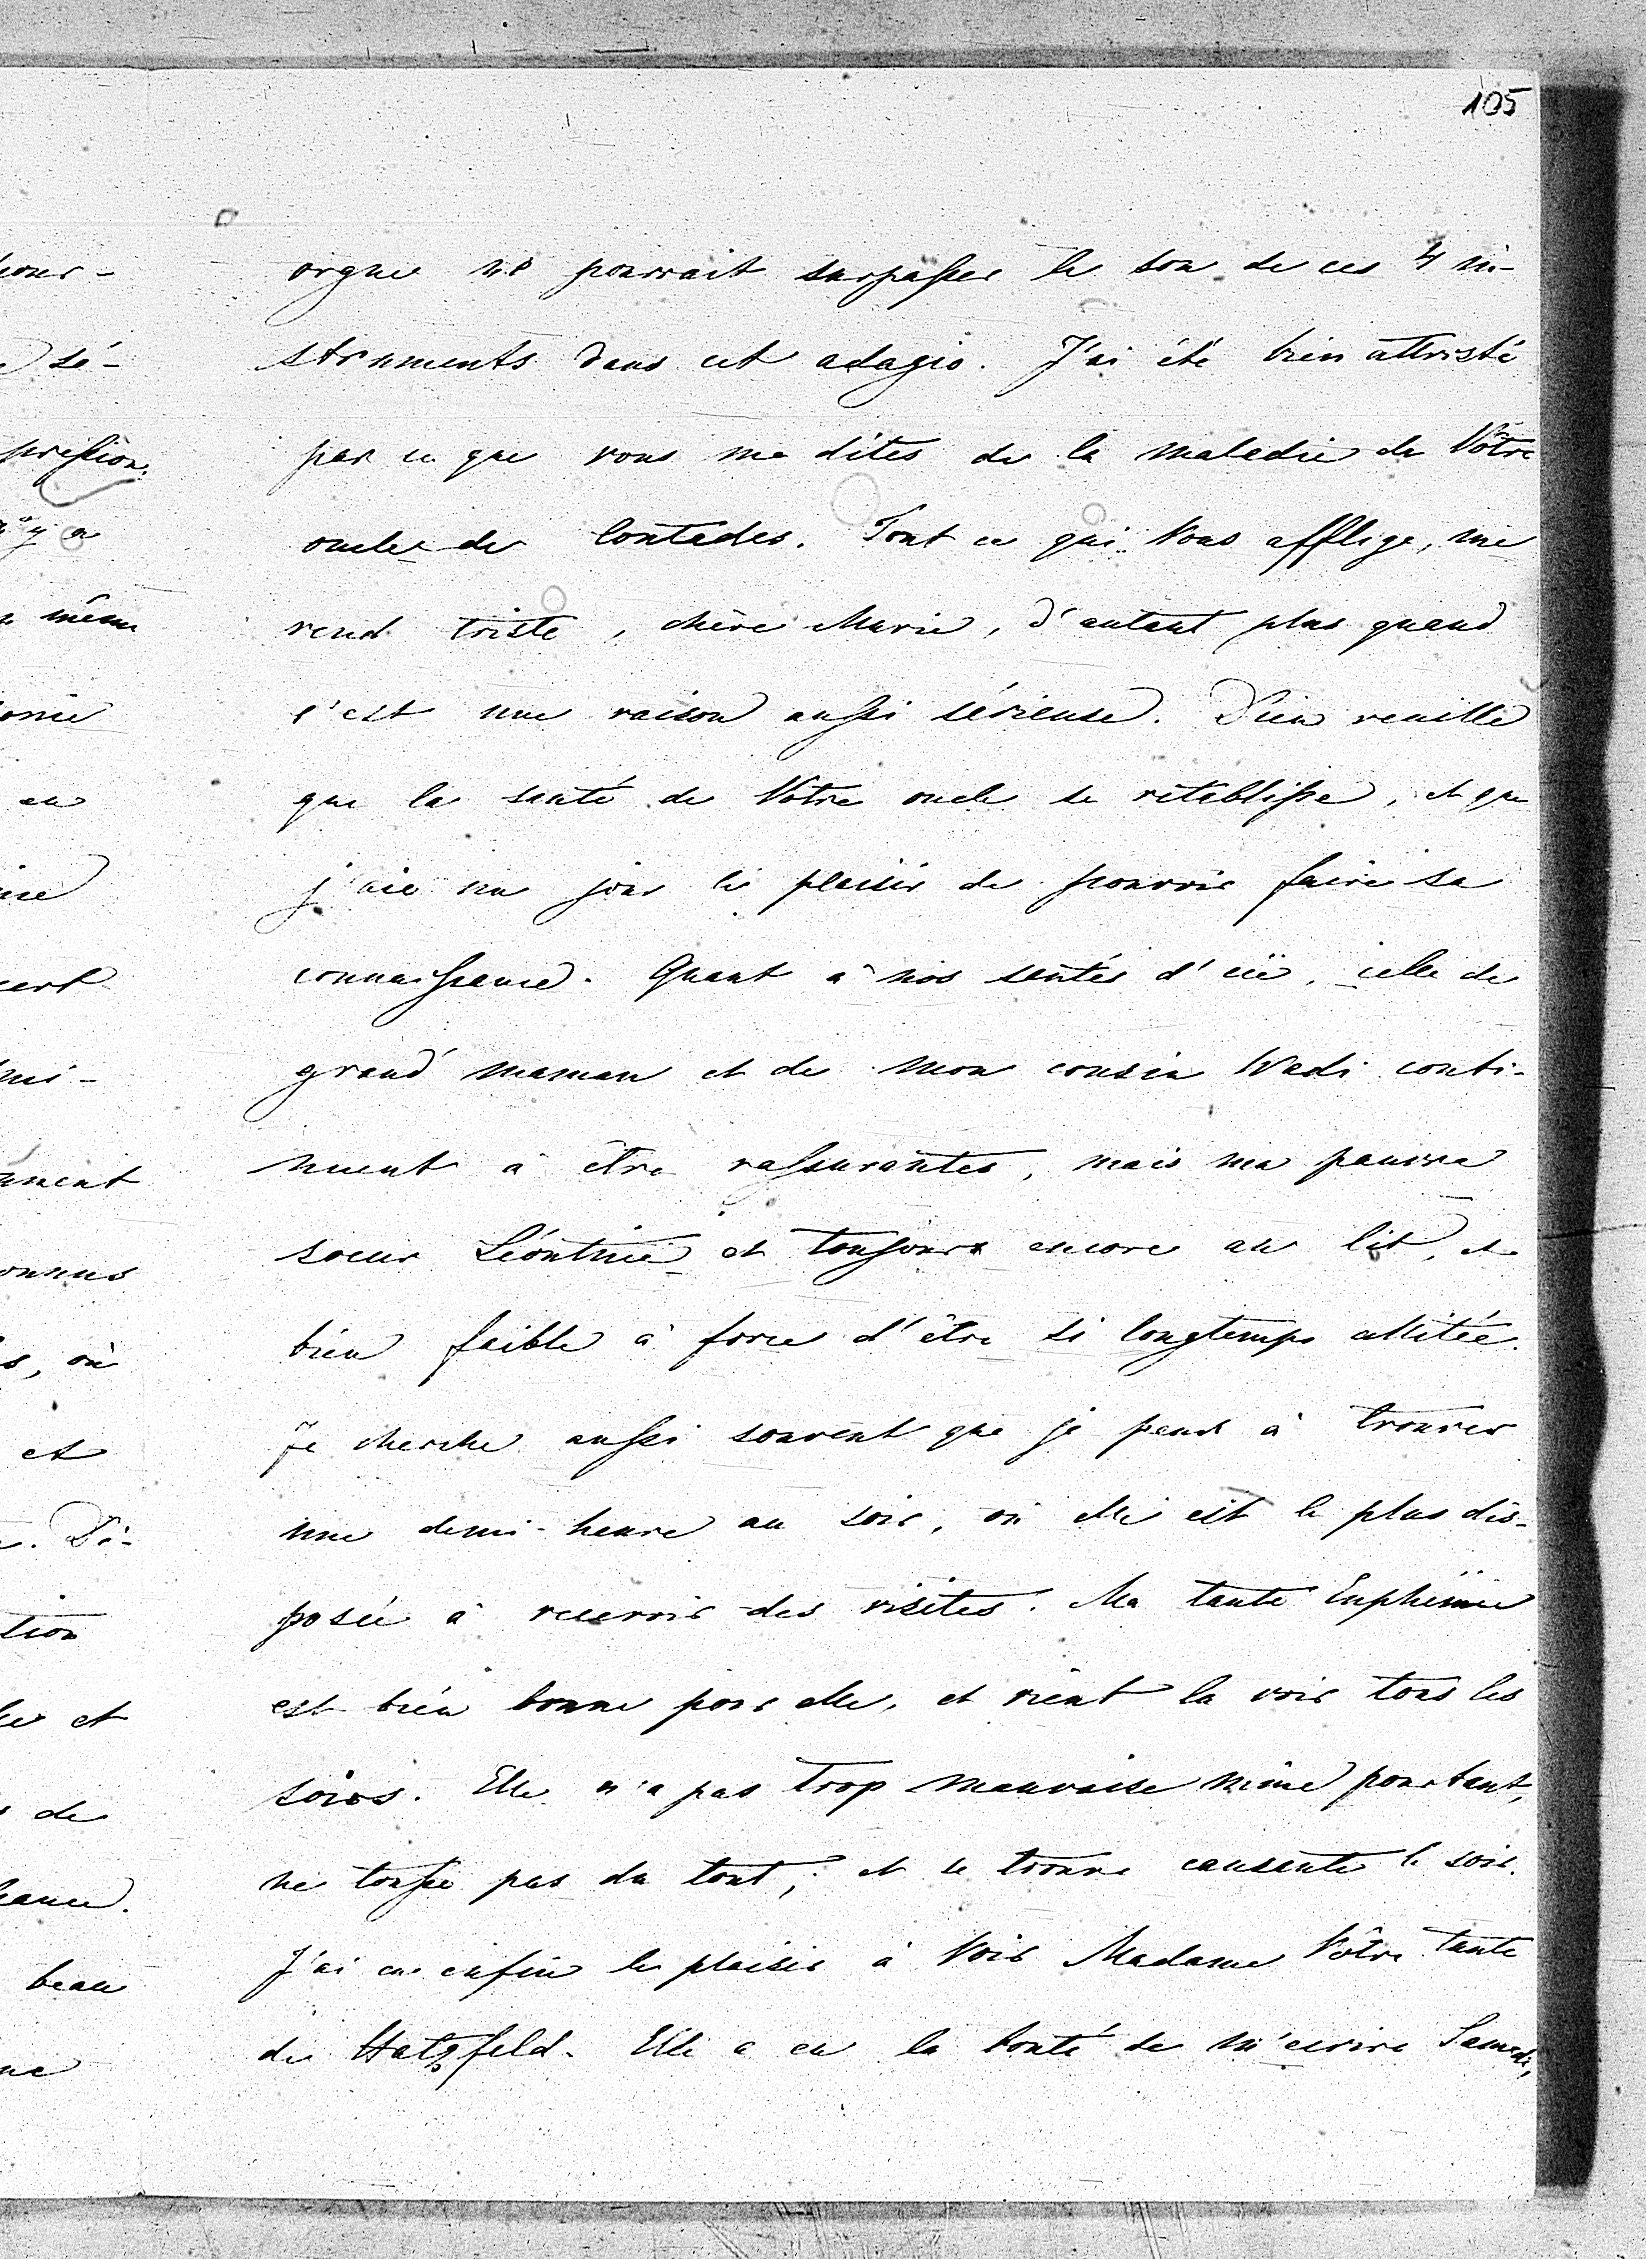 105
orgue ne pourrait surpasser le son de ces 4 in-
struments dans cet adagio. J'ai été bien attristé
par ce que vous me dites de la maladie de Vôtre
oncle de Contades. Tout ce qui Vous afflige, me
rend triste, chère Marie, d'autant plus quand
c'est une raison aussi sérieuse. Dieu veuille
que la santé de Votre oncle se rétablisse, et que
j'aie un jour le plaisir de pouvoir faire sa
connaissance. Quant à nos santés d'ici, celle de
grand'maman et de mon cousin Wadi conti-
nuent à être rassurantes, mais ma pauvre
soeur Léontine et toujours encore au lit, et
bien faible à force d'être si longtemps alitée.
Je cherche aussi souvent que je peux à trouver
une demi-heure au soir, où elle est le plus dis-
posée à recevoir des visites. Ma tante Euphémie
est bien bonne pour elle, et vient la voir tous les
soirs. Elle n'a pas trop mauvaise mine pourtant,
ne tousse pas du tout, et se trouve causante le soir.
J'ai eu enfin le plaisir à Voir Madame Vôtre tante
de Hatzfeld. Elle a eu la bonté de m'ecrire Samedi,
pression.
n'y a
même
en
ment
s, où
et
tion
et
de
beau